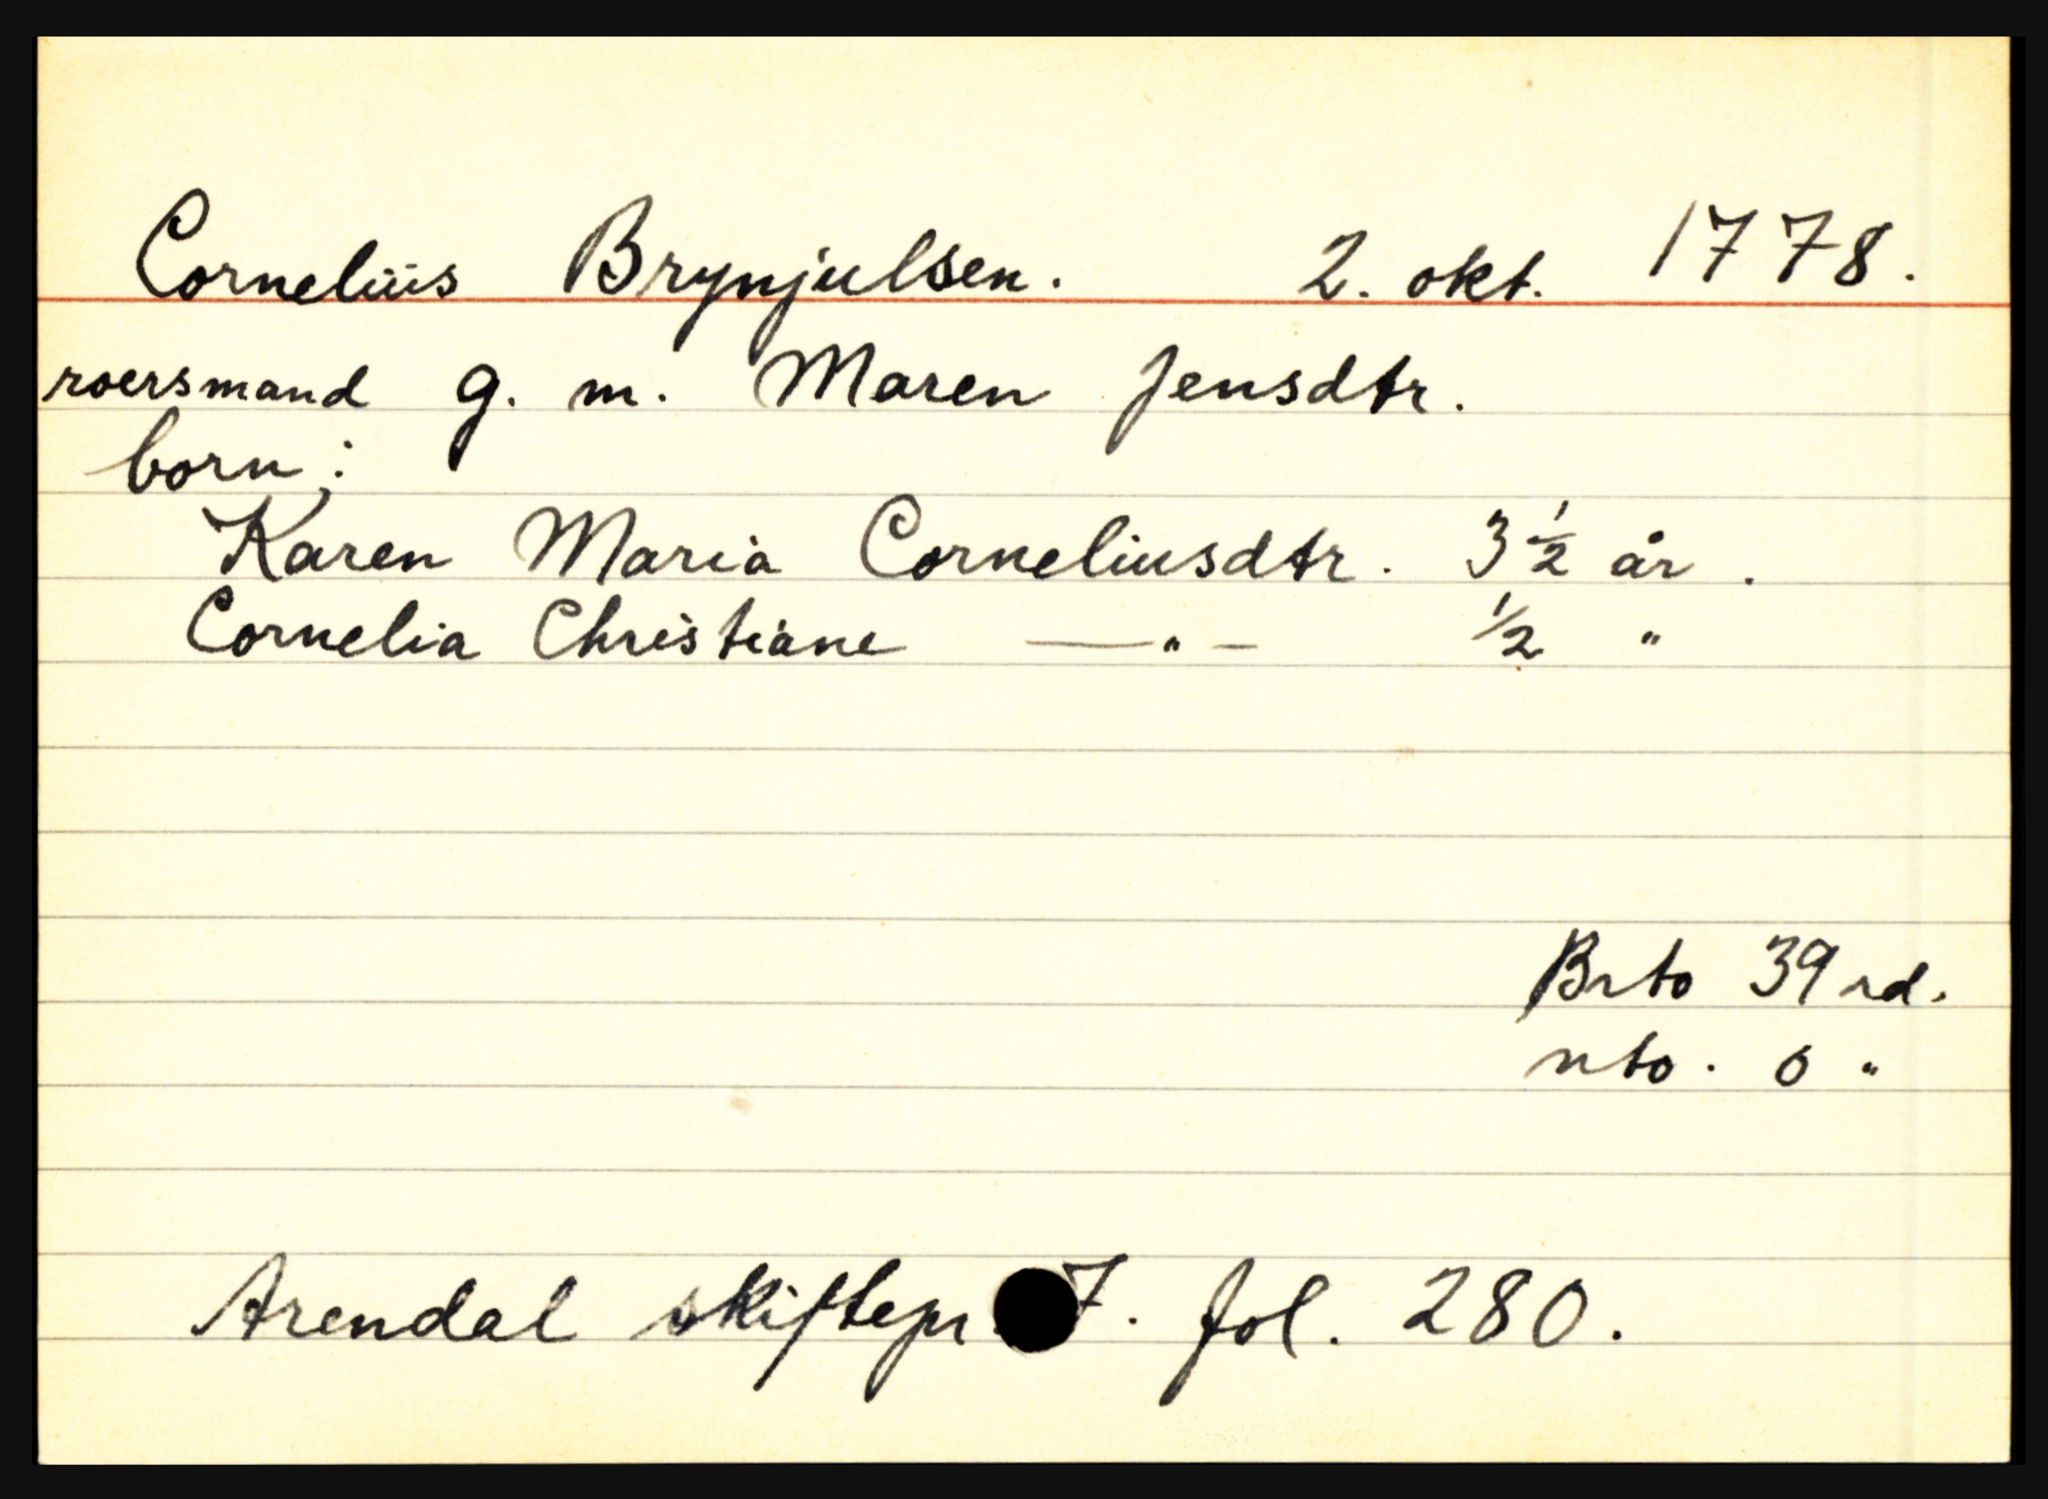 Cornelius Brynjulsen. 2. okt. 1778.
roersmand g. m. Maren Jensdtr.
born:
Karen Maria Corneliusdtr. 3 1/2 år.
Cornelia Christiane —"— 1/2 "
Brto 39 rd.
nto. 0 "
Arendal skiftepr. 7. fol. 280.